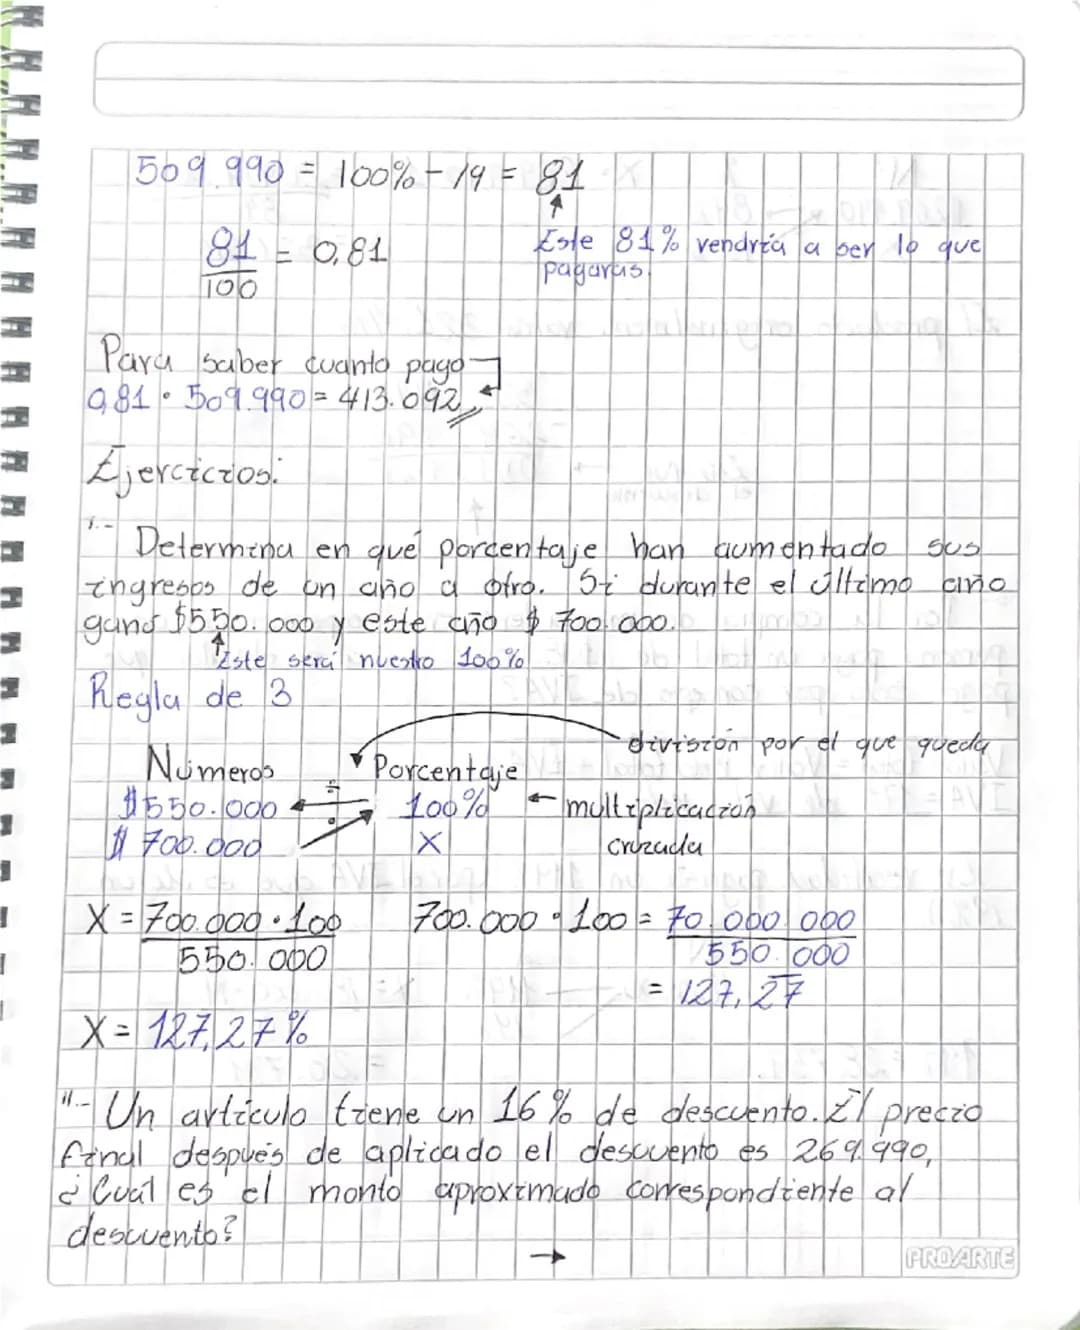 509.990 = 100% - 19 = 81
81/100 = 0,81
Este 81% vendría a ser lo que
pagarás.
Para saber cuanto pago
0,81 · 509.990 = 413.092
Ejercicios:
I.- Determina en qué porcentaje han aumentado sus
ingresos de un año a otro. Si durante el último año
ganó $550.000 y este año $700.000.
Este será nuestro 100%
Regla de 3
división por el que queda
Números Porcentaje
$550.000 ÷ 100% ← multiplicación
$700.000 X cruzada
X = 700.000 · 100 / 550.000
700.000 · 100 = 70.000.000 / 550.000
= 127,27
X = 127,27%
II.- Un artículo tiene un 16% de descuento. El precio
final después de aplicado el descuento es 269.990,
¿Cuál es el monto aproximado correspondiente al
descuento?
→
PROARTE